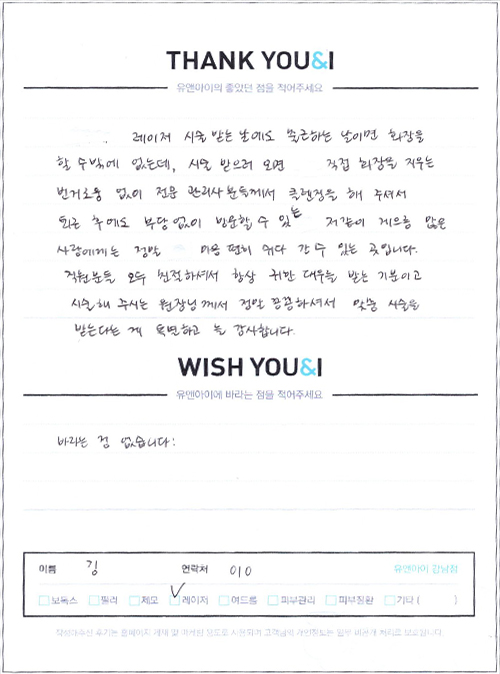 THANK YOU&I
유앤아이의 좋았던 점을 적어주세요
레이저 시술 받는 날에도 출근하는 날이면 화장을
할 수밖에 없는데, 시술 받으러 오면 직접 화장을 지우는
번거로움 없이 전문 관리사분들께서 클렌징을 해 주셔서
퇴근 후에도 부담없이 방문할 수 있는 저같이 게으름 많은
사람에게는 정말 마음 편히 왔다 갈 수 있는 곳입니다.
직원분들 모두 친절하셔서 항상 귀한 대우를 받는 기분이고
시술해 주시는 원장님께서 정말 꼼꼼하셔서 맞춤 시술을
받는다는 게 느껴지고 늘 감사합니다.
WISH YOU&I
유앤아이에 바라는 점을 적어주세요
바라는 점 없습니다:
이름 김 연락처 010 유앤아이 강남점
보톡스 필러 제모 레이저 여드름 피부관리 피부질환 기타 ( )
작성해주신 후기는 홈페이지 게재 및 마케팅 용도로 사용되며 고객님의 개인정보는 일부 비공개 처리로 보호됩니다.